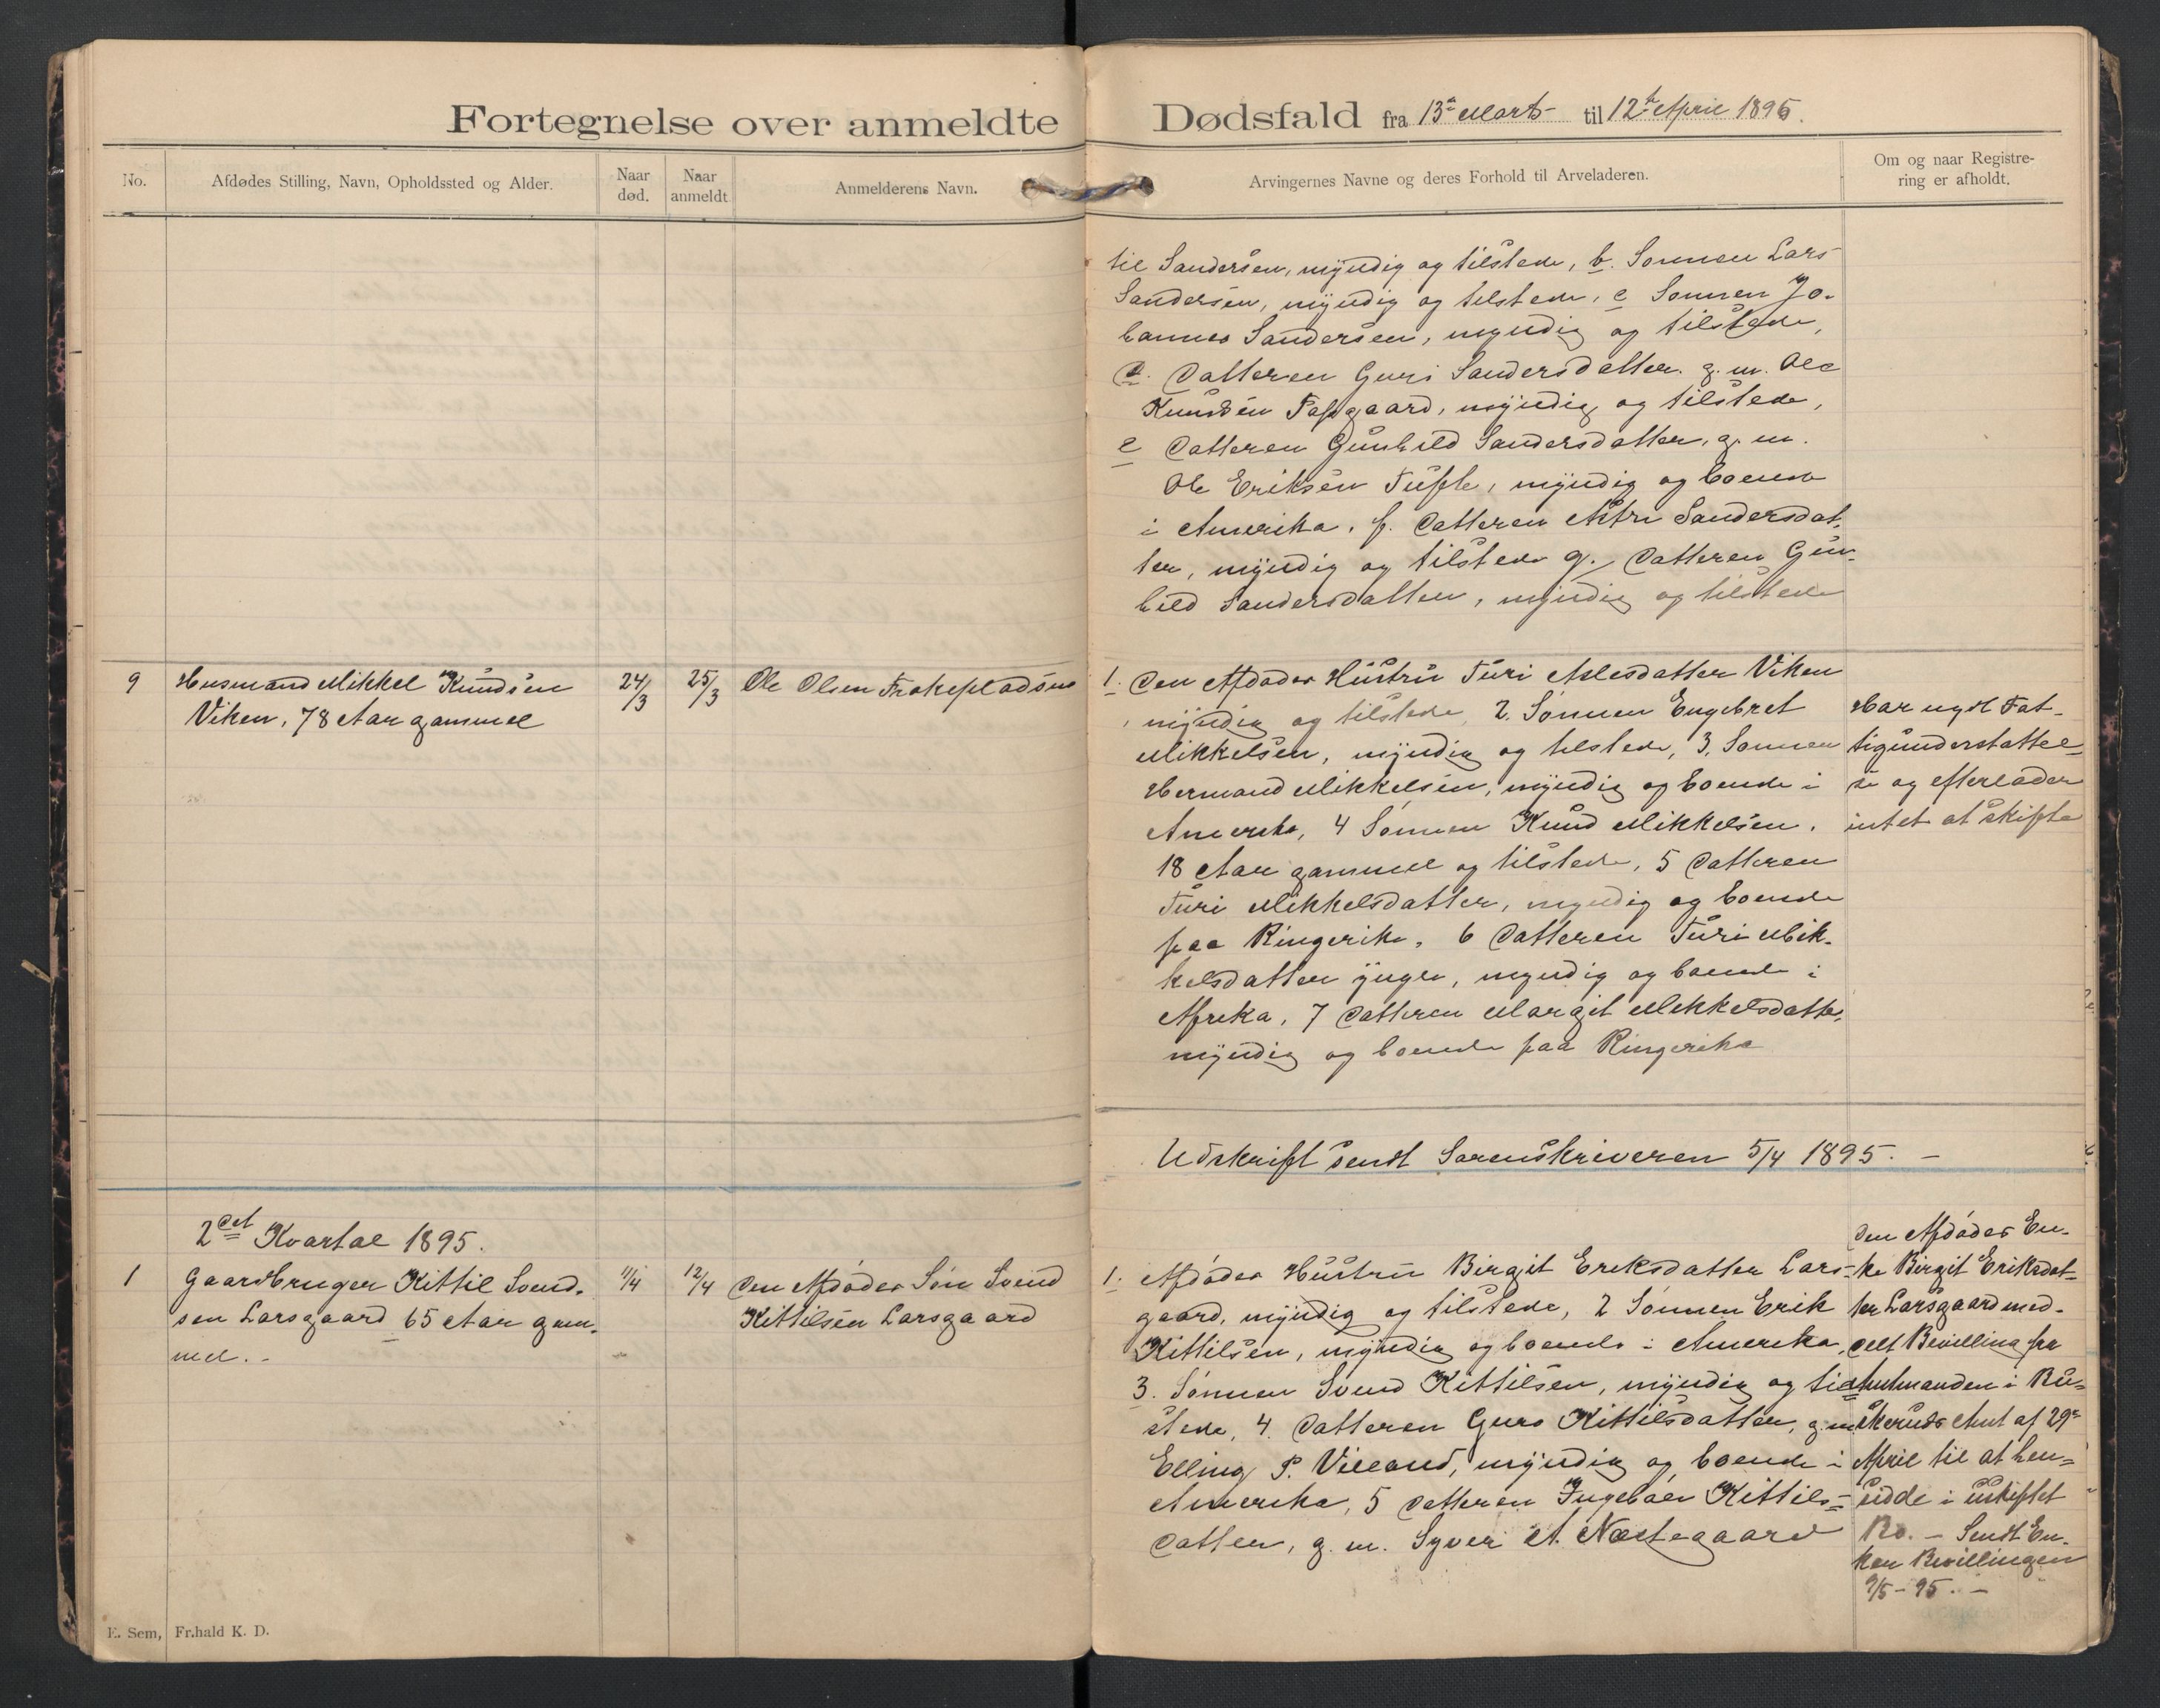 Fortegnelse over anmeldte Dødsfald fra 13de Marts til 12te April 1895.
No.
Afdødes Stilling, Navn, Opholdssted og Alder.
Naar død.
Naar anmeldt
Anmelderens Navn.
Arvingernes Navne og deres Forhold til Arveladeren.
Om og naar Registre-
ring er afholdt.
til Sandersen, myndig og tilstede, b. Sønnen Lars
Sandersen, myndig og tilstede, c Sønnen Jo-
hannes Sandersen, myndig og tilstede,
d. Datteren Guri Sandersdatter g. m. Ole
Knudsen Pasgaard, myndig og tilstede,
e Datteren Gunhild Sandersdatter, g. m.
Ole Eriksen Tufte, myndig og boende
i Amerika. f. Datteren Astri Sandersdat-
ter, myndig og tilstede g. Datteren Gun-
hild Sandersdatter, myndig og tilstede
9
Husmand Mikkel Knudsen
Viken, 78 Aar gammel
24/3
25/3
Ole Olsen
1. Den Afdødes Hustru Turi Aslesdatter Viken
myndig og tilstede, 2. Sønnen Engebret
Mikkelsen, myndig og tilstede, 3. Sønnen
Hermand Mikkelsen, myndig og boende i
Amerika, 4 Sønnen Knud Mikkelsen,
18 Aar gammel og tilstede, 5 Datteren
Turi Mikkelsdatter, myndig og boende
paa Ringerike, 6 Datteren Turi Mik-
kelsdatter yngre, myndig og boende i
Afrika, 7 Datteren Margit Mikkelsdatter
myndig og boende paa Ringerike
Har nydt Fat-
tigunderstøttel-
se og efterlader
intet at skifte
Udskrift sendt Sorenskriveren 5/4 1895. -
2det Kvartal 1895.
1
Gaardbruger Kittil Svend-
sen Larsgaard 65 Aar gam-
mel. -
11/4
12/4
Den Afdødes Søn Svend
Kittilsen Larsgaard
1. Afdødes Hustru Birgit Eriksdatter Lars-
gaard, myndig og tilstede, 2 Sønnen Erik
Kittilsen, myndig og boende i Amerika,
3. Sønnen Svend Kittilsen, myndig og til-
stede, 4. Datteren Guro Kittilsdatter, g. m
Elling P. Villand, myndig og boende i
Amerika, 5 Datteren Ingebor Kittils-
datter, g. m. Syver A. Næstegaard
Den Afdødes En-
ke Birgit Eriksdat-
ter Larsgaard med-
delt Bevilling fra
Amtmanden i Bu-
skeruds Amt af 29de
April til at hen-
sidde i uskiftet
Bo. - Sendt En-
ken Bevillingen
9/5 - 95. -
E. Sem, Fr.hald K. D.